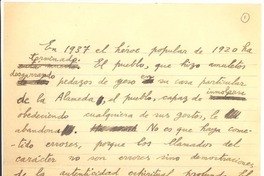 1
En 1937 el héroe popular de 1920 ha
terminado. El pueblo, que hizo amuletos
pedazos de yeso su casa particular
de la Alameda, el pueblo, capaz de
obedeciendo cualquiera de sus gestos, lo
abandona. No es que haya come-
tido errores, porque los llamados del
carácter no son errores sino demostraciones
de la autenticidad espiritual